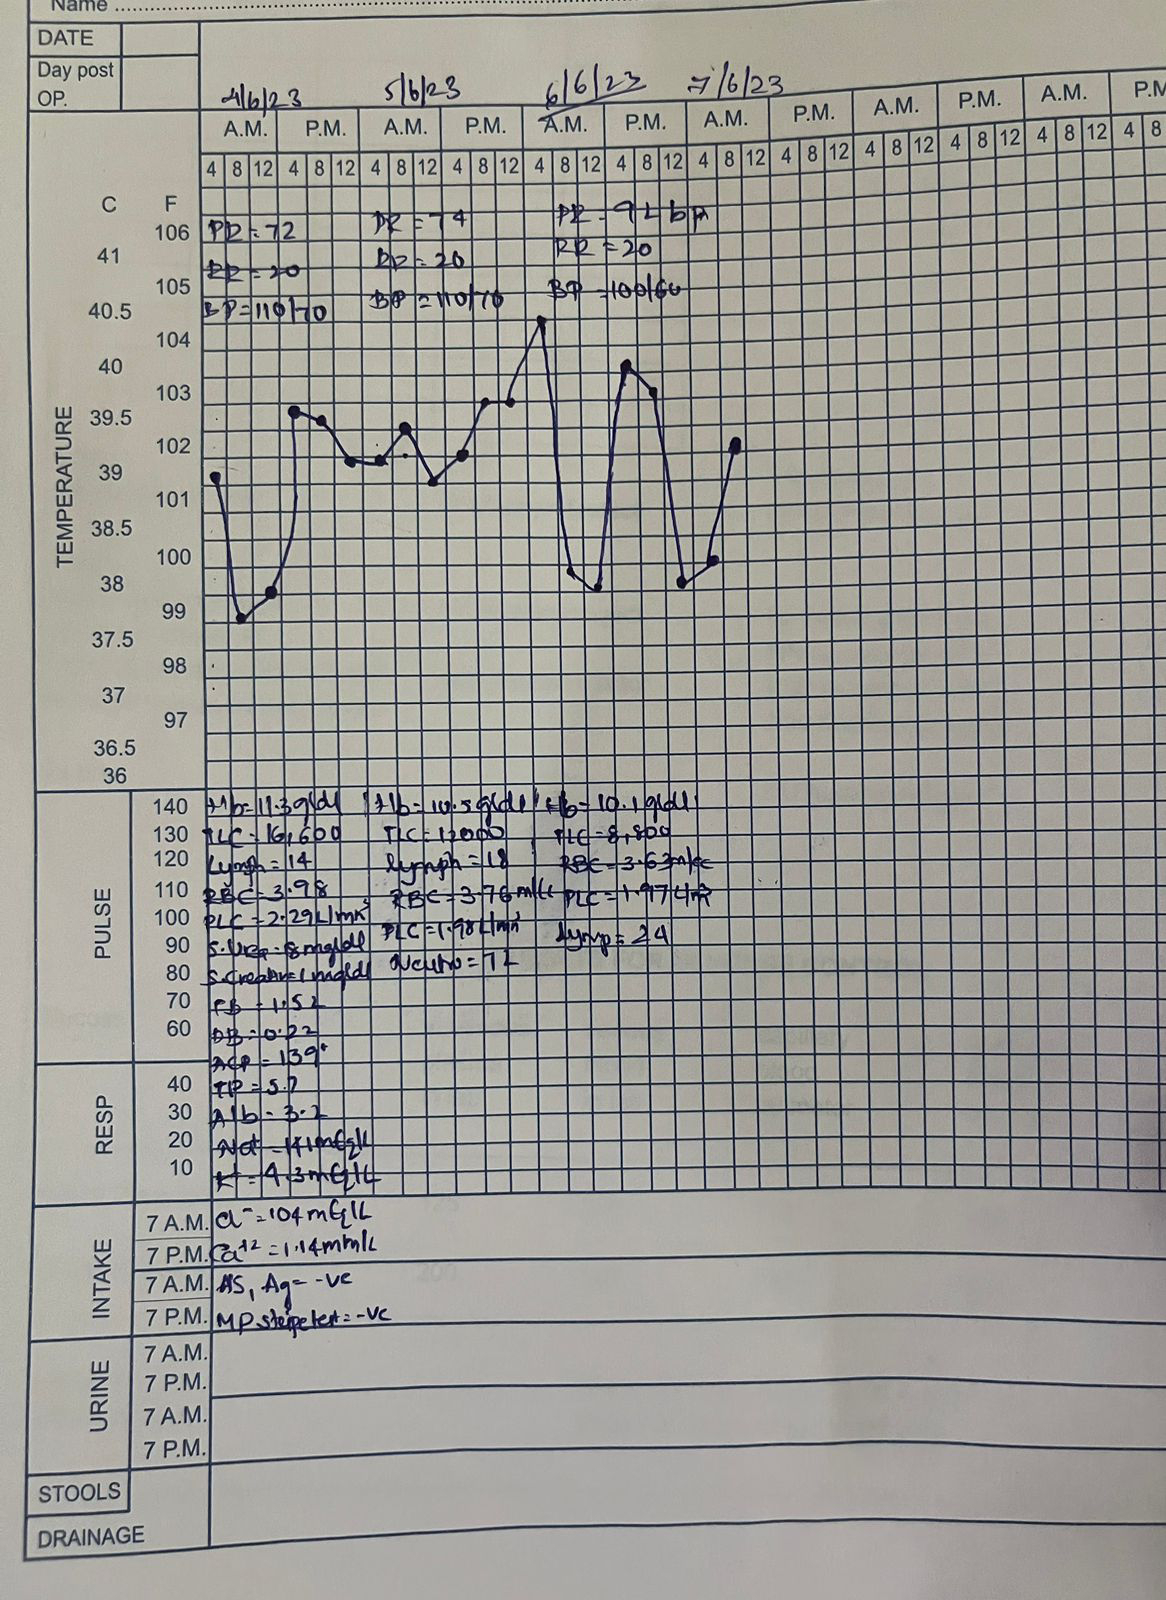 Name
DATE
Day post
OP.
4/6/23 5/6/23 6/6/23 7/6/23
A.M. P.M. A.M. P.M. A.M. P.M. A.M. P.M. A.M. P.M. A.M. P.M
4 8 12 4 8 12 4 8 12 4 8 12 4 8 12 4 8 12 4 8 12 4 8 12 4 8 12 4 8 12 4 8 12 4 8
TEMPERATURE
C F
106 PR = 72 PR = 74 PR - 92 bpm
41 RR = 20 RR = 20 RR = 20
105
40.5 BP = 110/70 BP = 110/70 BP = 100/60
104
40
103
39.5
102
39
101
38.5
100
38
99
37.5
98
37
97
36.5
36
PULSE
140 Hb = 11.3 g/dl Hb = 10.5 g/dl Hb = 10.1 g/dl
130 TLC - 16,600 TLC = 12000 TLC = 8,800
120 Lymph = 14 Lymph = 18 RBC = 3.63 m/cc
110 RBC = 3.98 RBC = 3.76 m/cc PLC = 1.97 L/m3
100 PLC = 2.29 L/mm3 PLC = 1.98 L/mm3 Lymp = 24
90 S. Urea = 8 mg/dl Neutro = 72
80 S. Creatin = 1 mg/dl
70 TB = 1.52
60 DB = 0.22
= 139
RESP
40 TP = 5.7
30 Alb - 3.2
20 Na+ - 141 mEq/L
10 K+ = 4.3 mEq/L
INTAKE
7 A.M. Cl- = 104 mEq/L
7 P.M. Ca+2 = 1.14 mm/L
7 A.M. NS1 Ag = -ve
7 P.M. MP = -ve
URINE
7 A.M.
7 P.M.
7 A.M.
7 P.M.
STOOLS
DRAINAGE